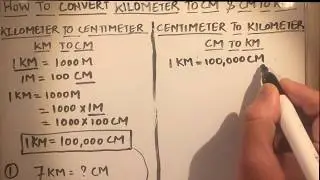 HOW TO CONVERT KILOMETER TO CM &
KILOMETER TO CENTIMETER
KM TO CM
1 KM = 1000 M
1 M = 100 CM
1 KM = 1000 M
= 1000 × 1M
= 1000 × 100 CM
1 KM = 100,000 CM
① 7 KM = ? CM
CENTIMETER TO KILOMETER
CM TO KM
1 KM = 100,000 CM